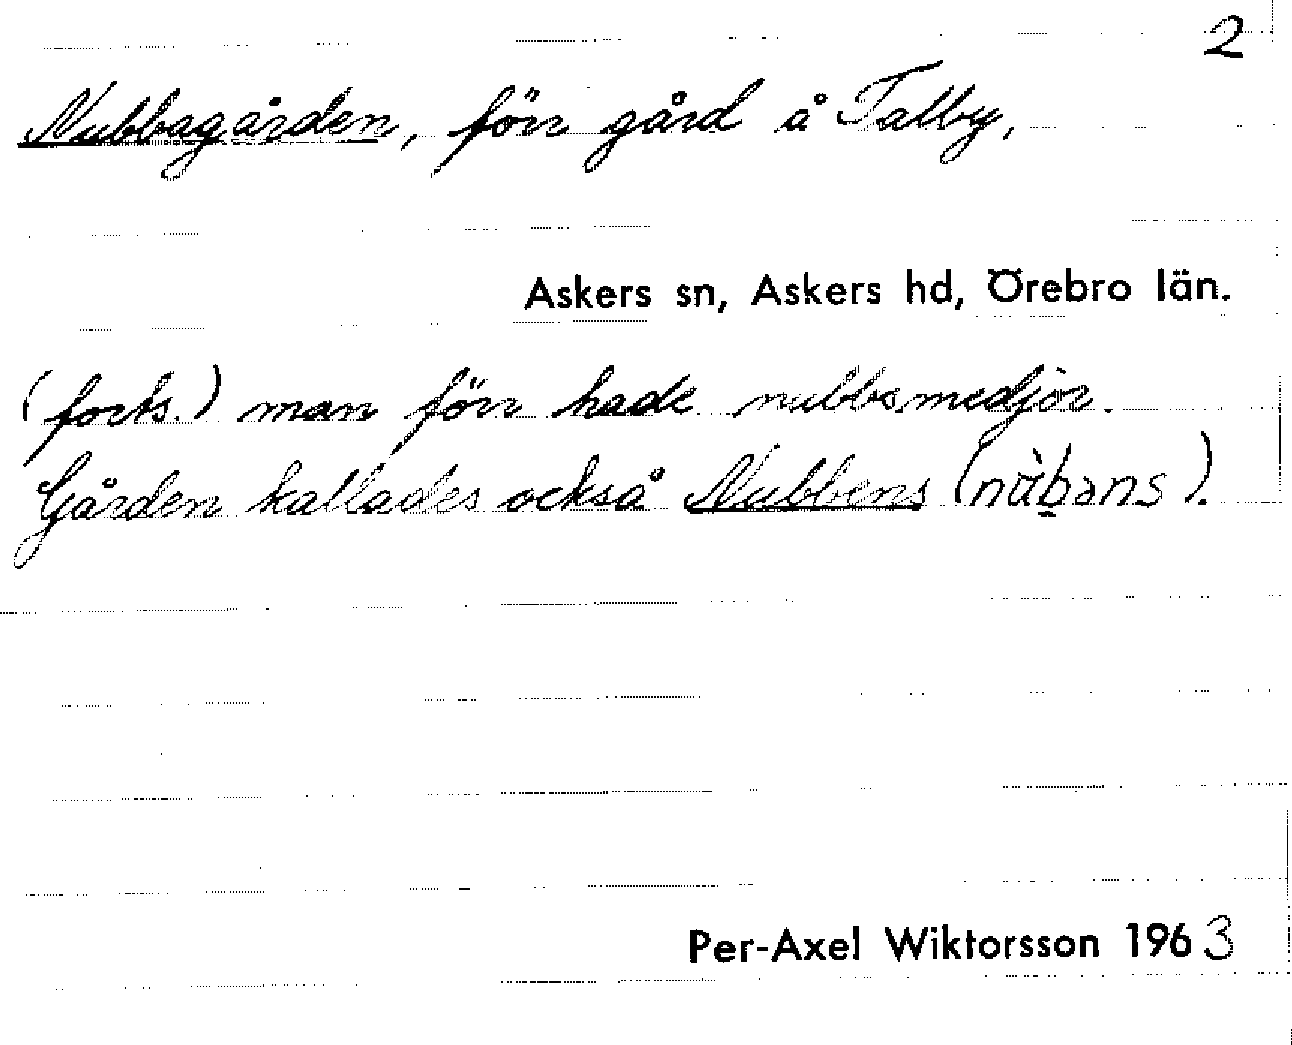 2
Nubbagården, förr gård å Talby,
Askers sn, Askers hd, Örebro län.
(forts.) man förr hade nubbsmedjor.
Gården kallades också Nubbens (nùb̠əns).
Per-Axel Wiktorsson 1963